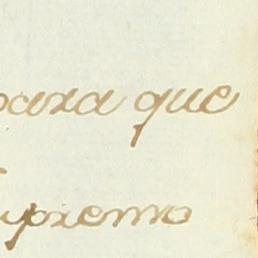 para que
Supremo